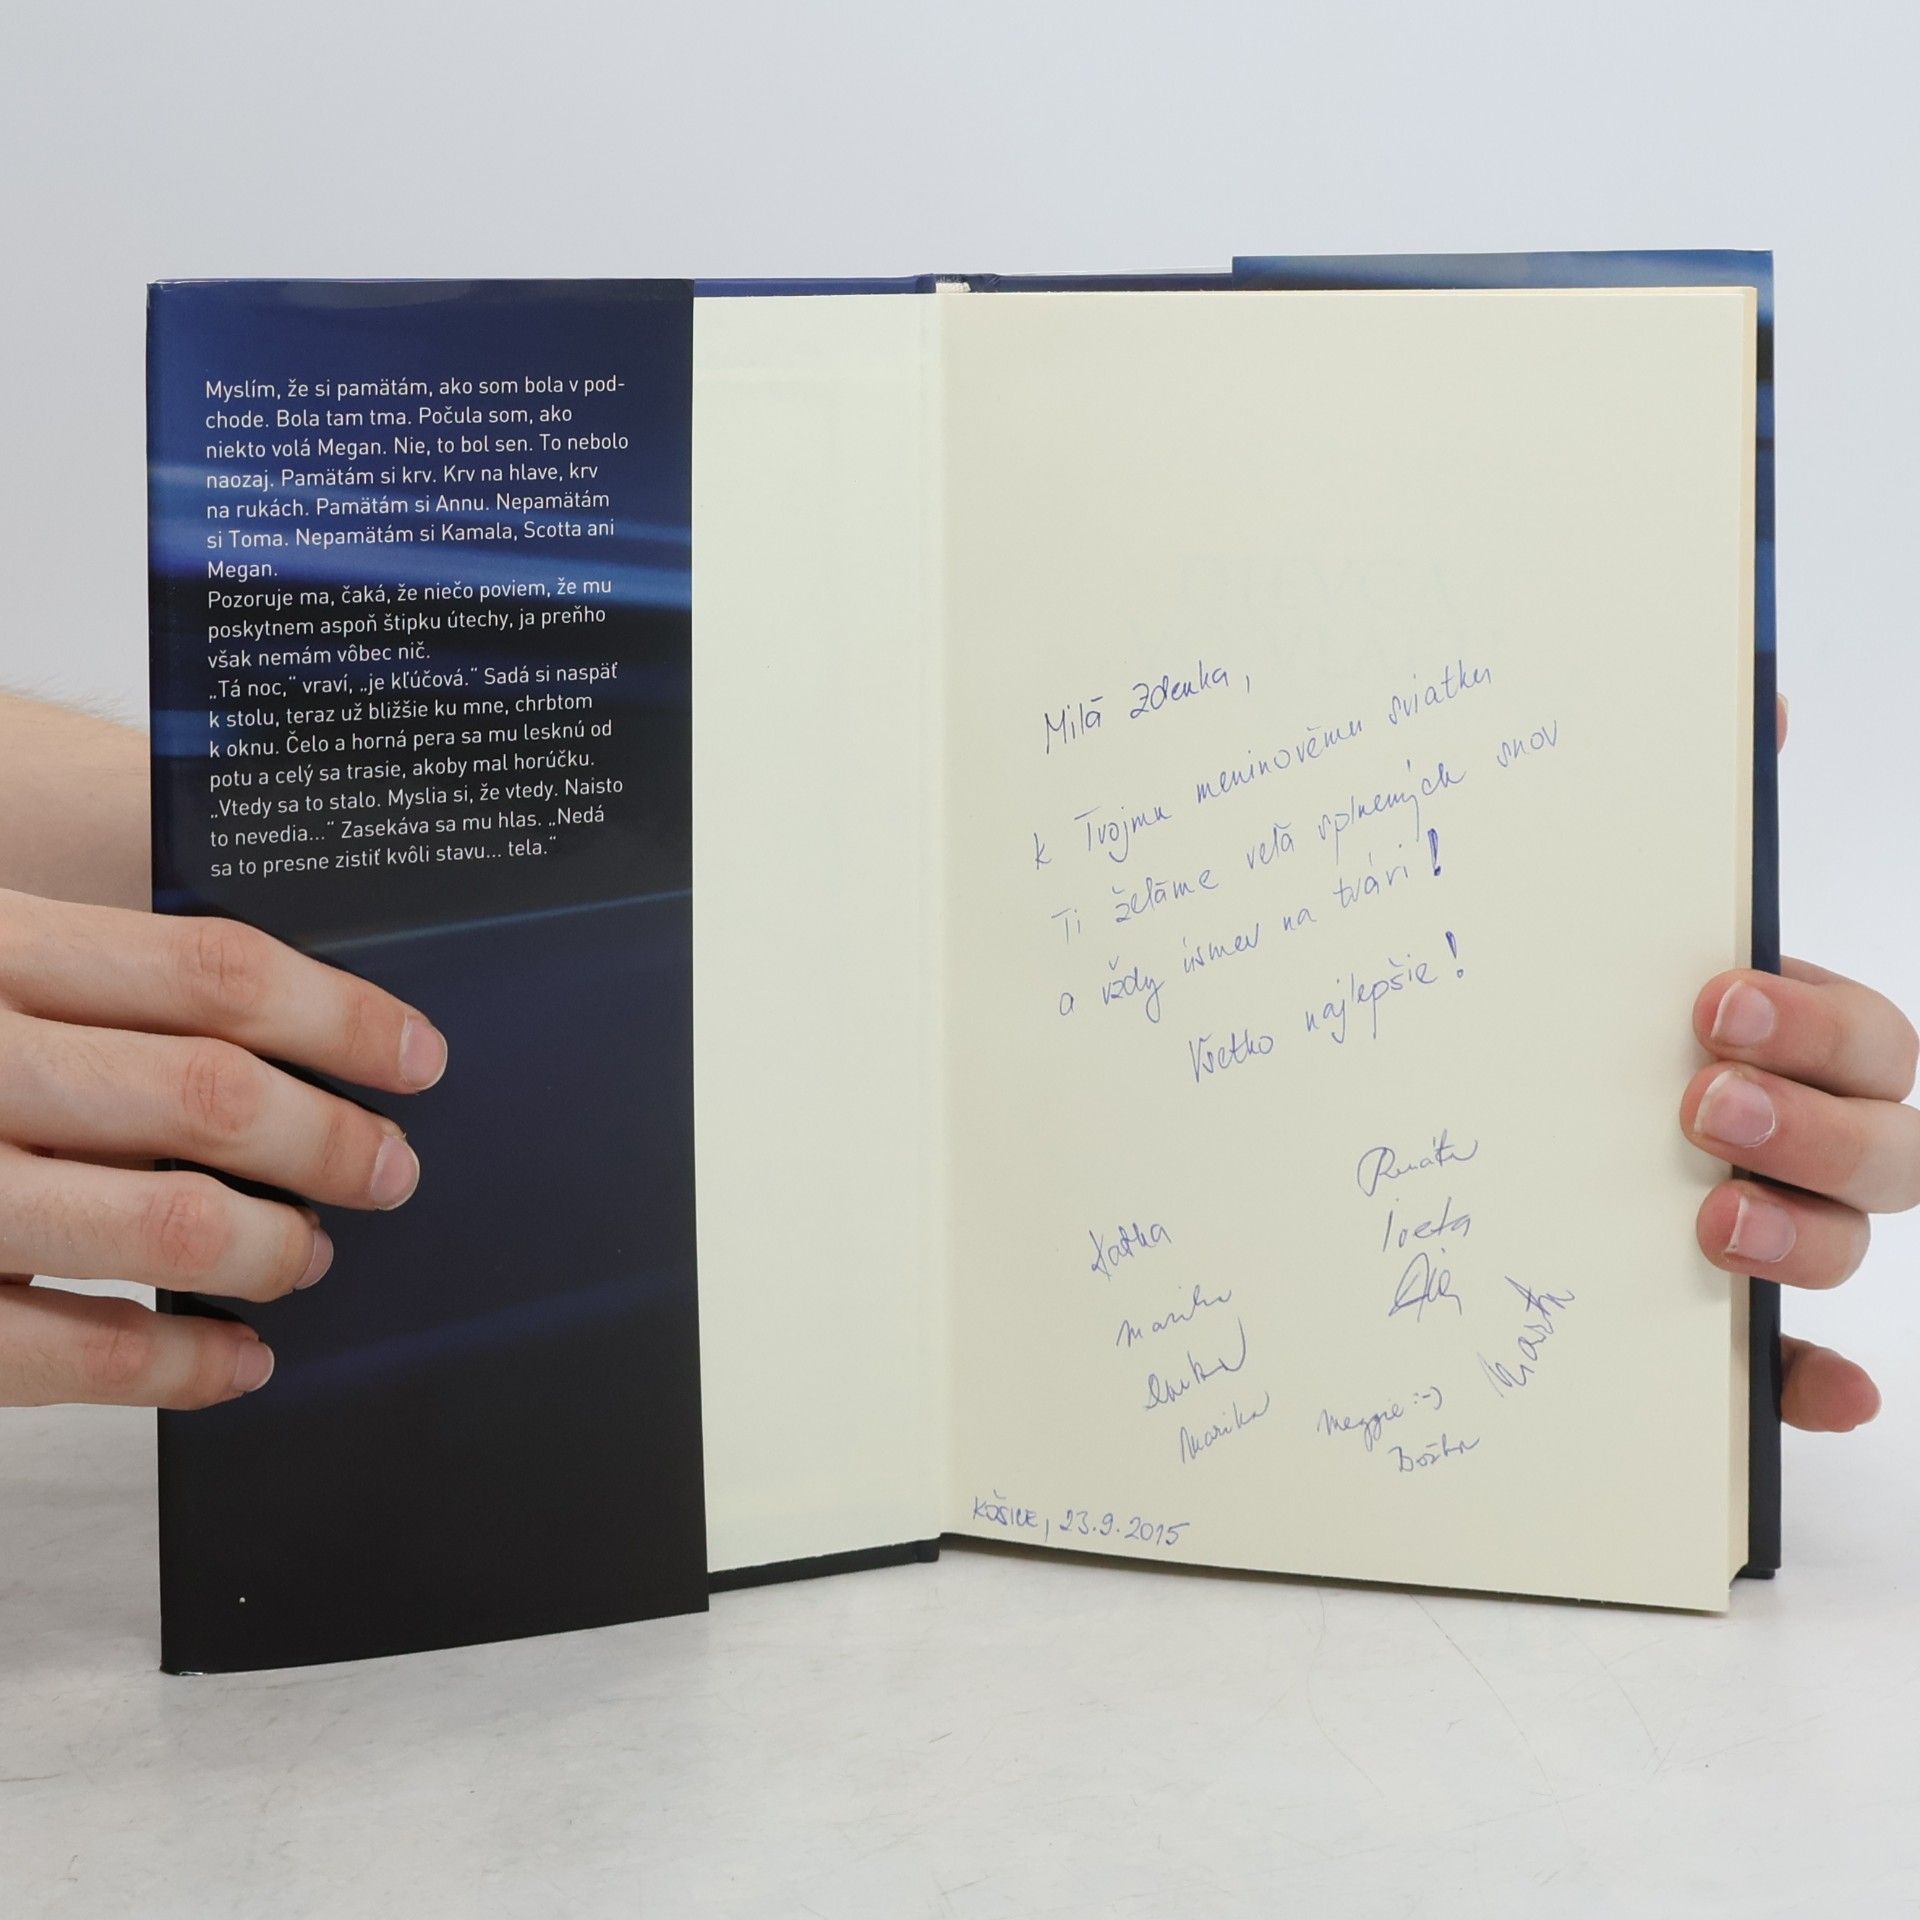 Myslím, že si pamätám, ako som bola v pod-
chode. Bola tam tma. Počula som, ako
niekto volá Megan. Nie, to bol sen. To nebolo
naozaj. Pamätám si krv. Krv na hlave, krv
na rukách. Pamätám si Annu. Nepamätám
si Toma. Nepamätám si Kamala, Scotta ani
Megan.
Pozoruje ma, čaká, že niečo poviem, že mu
poskytnem aspoň štipku útechy, ja preňho
však nemám vôbec nič.
„Tá noc,“ vraví, „je kľúčová.“ Sadá si naspäť
k stolu, teraz už bližšie ku mne, chrbtom
k oknu. Čelo a horná pera sa mu lesknú od
potu a celý sa trasie, akoby mal horúčku.
„Vtedy sa to stalo. Myslia si, že vtedy. Naisto
to nevedia...“ Zasekáva sa mu hlas. „Nedá
sa to presne zistiť kvôli stavu... tela.“
Milá Zdenka,
k Tvojmu meninovému sviatku
Ti želáme veľa splnených snov
a vždy úsmev na tvári!
Všetko najlepšie!
Renáta
Iveta
Katka
Marika
Marta
Marika
Meggie :-)
Božka
KOŠICE, 23.9.2015